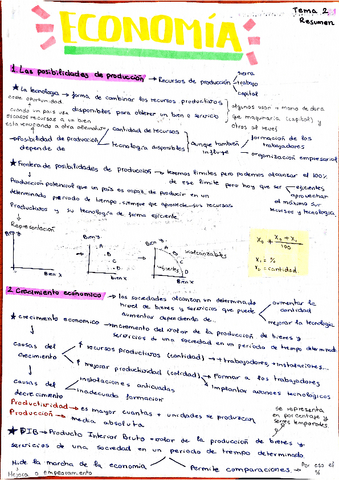 Tema 2
Resumen
ECONOMÍA
1. Las posibilidades de producción → Recursos de producción
tierra
trabajo
capital
★ La tecnología → forma de combinar los recursos productivos
disponibles para obtener un bien o servicio
algunos usan + mano de obra
que maquinaria (capital) y
otros al revés
Posibilidad de producción
depende de
cantidad de recursos
tecnología disponible
aunque también
influye
formación de los
trabajadores
organización empresarial
★ Frontera de posibilidades de producción → tenemos límites pero podemos alcanzar el 100%
de ese límite pero hay que ser eficientes
aprovechar
al máximo sus
recursos y tecnología
Producción potencial que un país es capaz de producir en un
determinado periodo de tiempo, siempre que aproveche sus recursos
Productivos y su tecnología de forma eficiente
Representación
Bien Y
Bien X
Bien Y
A
B
C
D
Bien X
Bien Y
A
B
C
D
inalcanzables
Bien X
2. Crecimiento económico → las sociedades alcanzan un determinado
nivel de bienes y servicios que puede
aumentar dependiendo de...
aumentar la
cantidad
mejorar la tecnología
★ Crecimiento económico → incremento del valor de la producción de bienes y
servicios de una sociedad en un periodo de tiempo determinado
causas del
crecimiento
↑ recursos productivos (cantidad) → + trabajadores, + instalaciones...
↑ mejorar productividad (calidad)
Formar a los trabajadores
Implantar avances tecnológicos
causas del
decrecimiento
instalaciones anticuadas
inadecuada formación
Productividad = es mayor cuantas + unidades se produzcan
Producción = media absoluta
se representa
en porcentaje y
series temporales
★ PIB → Producto Interior Bruto = valor de la producción de bienes y
servicios de una sociedad en un periodo de tiempo determinado
Mide la marcha de la economía
Mejora o empeoramiento
Permite comparaciones
Por eso el
%